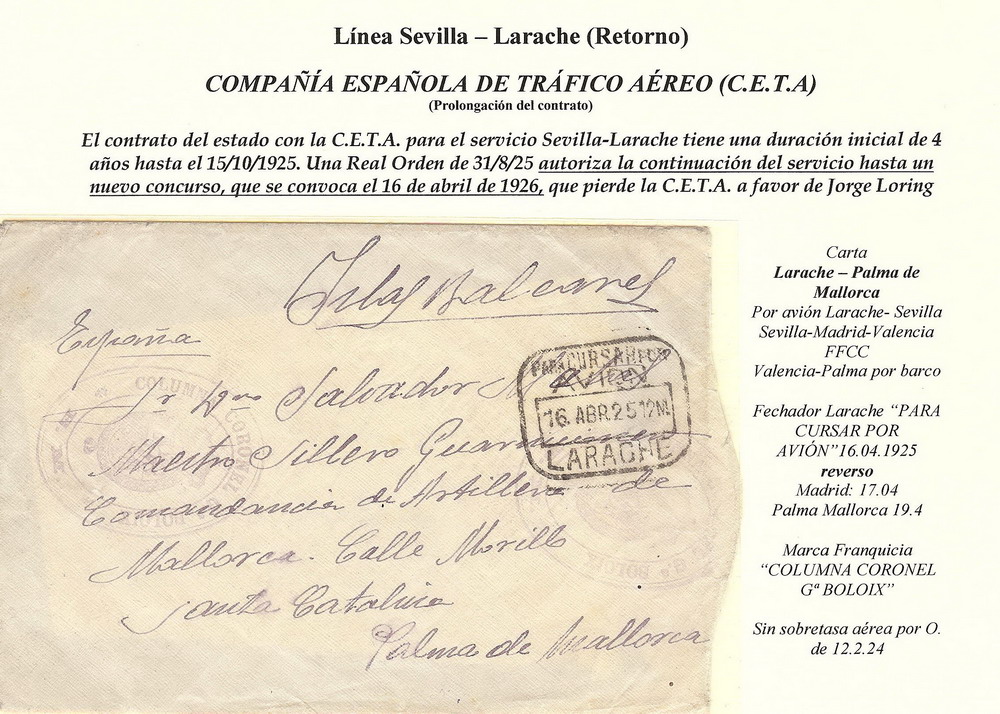 Línea Sevilla – Larache (Retorno)
COMPAÑÍA ESPAÑOLA DE TRÁFICO AÉREO (C.E.T.A)
(Prolongación del contrato)
El contrato del estado con la C.E.T.A. para el servicio Sevilla-Larache tiene una duración inicial de 4
años hasta el 15/10/1925. Una Real Orden de 31/8/25 autoriza la continuación del servicio hasta un
nuevo concurso, que se convoca el 16 de abril de 1926, que pierde la C.E.T.A. a favor de Jorge Loring
Islas Baleares
España
Sr Dn Salvador
Maestro Sillero
Comandancia de Artilleria de
Mallorca. Calle Morillo
Santa Catalina
Palma de Mallorca
PARA CURSAR POR
AVION
16. ABR. 25 12M.
LARACHE
COLUMNA CORONEL
Carta
Larache – Palma de
Mallorca
Por avión Larache- Sevilla
Sevilla-Madrid-Valencia
FFCC
Valencia-Palma por barco
Fechador Larache “PARA
CURSAR POR
AVIÓN”16.04.1925
reverso
Madrid: 17.04
Palma Mallorca 19.4
Marca Franquicia
“COLUMNA CORONEL
Gª BOLOIX”
Sin sobretasa aérea por O.
de 12.2.24